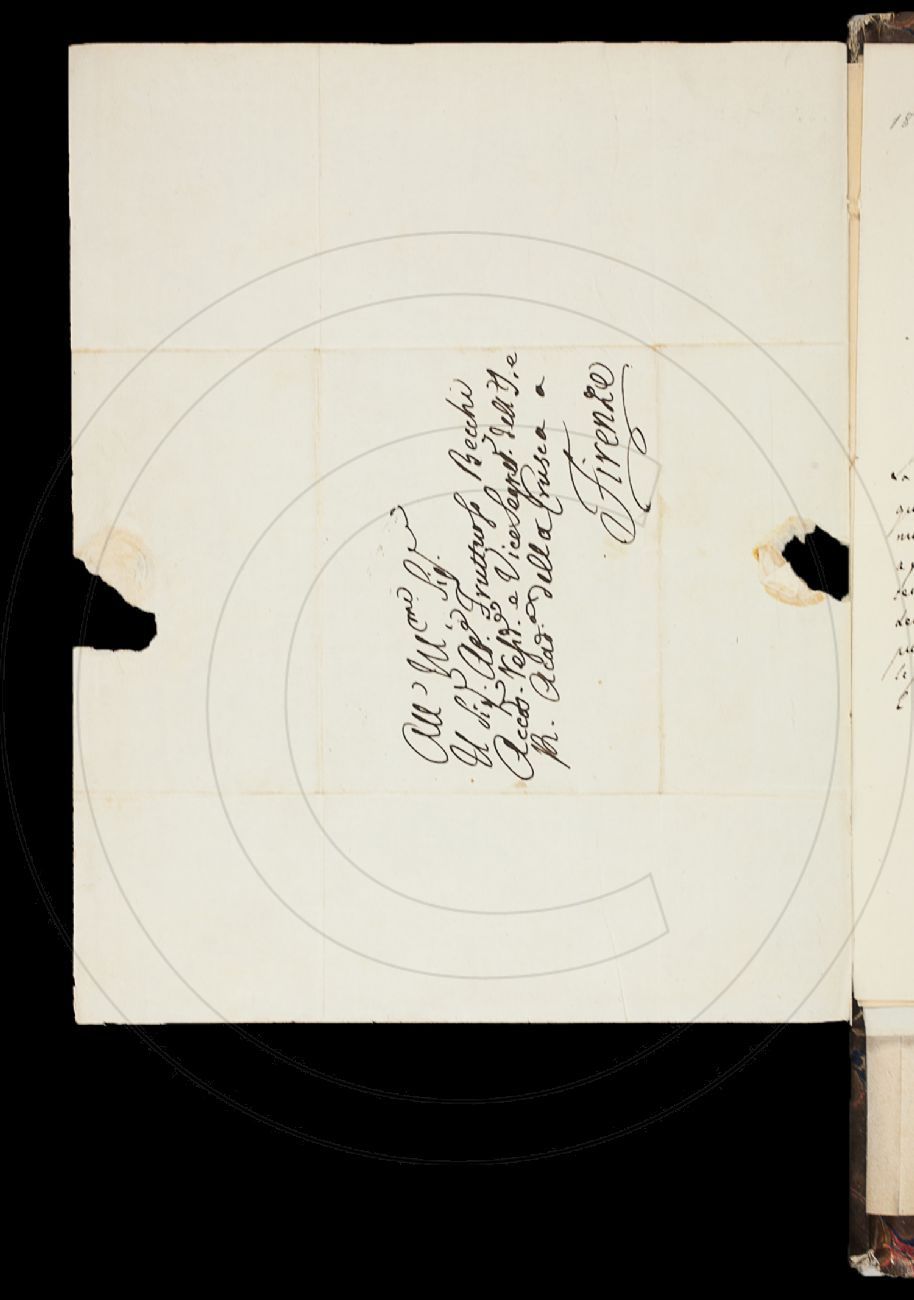 All' Ill.mo Sig.
Il Sig. Ab.e Fruttuoso Becchi
Accad. Resid. e Vice Segret. dell' I. e
R. Accad. della Crusca a
Firenze
18